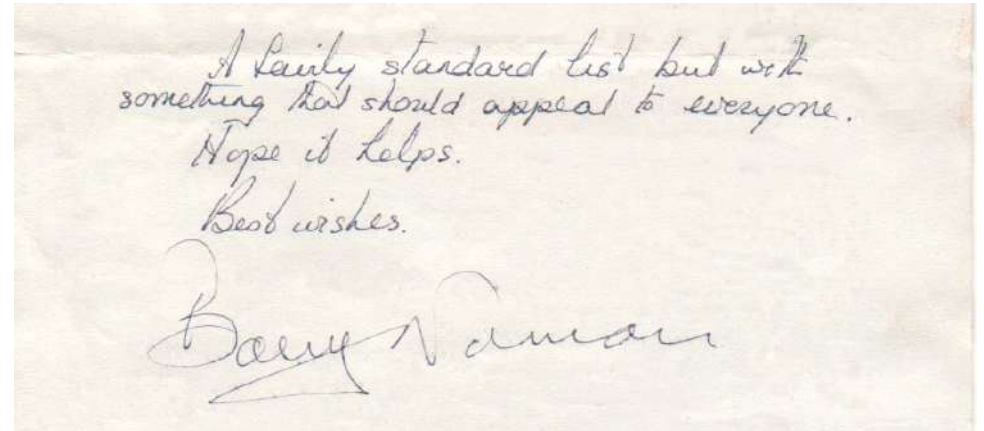 A fairly standard list but with
something that should appeal to everyone.
Hope it helps.
Best wishes.
Barry Norman